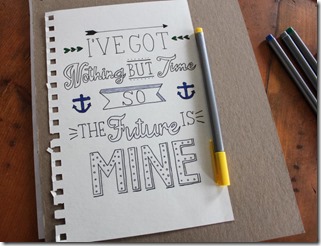 I'VE GOT
Nothing BUT Time
SO
THE Future IS
MINE